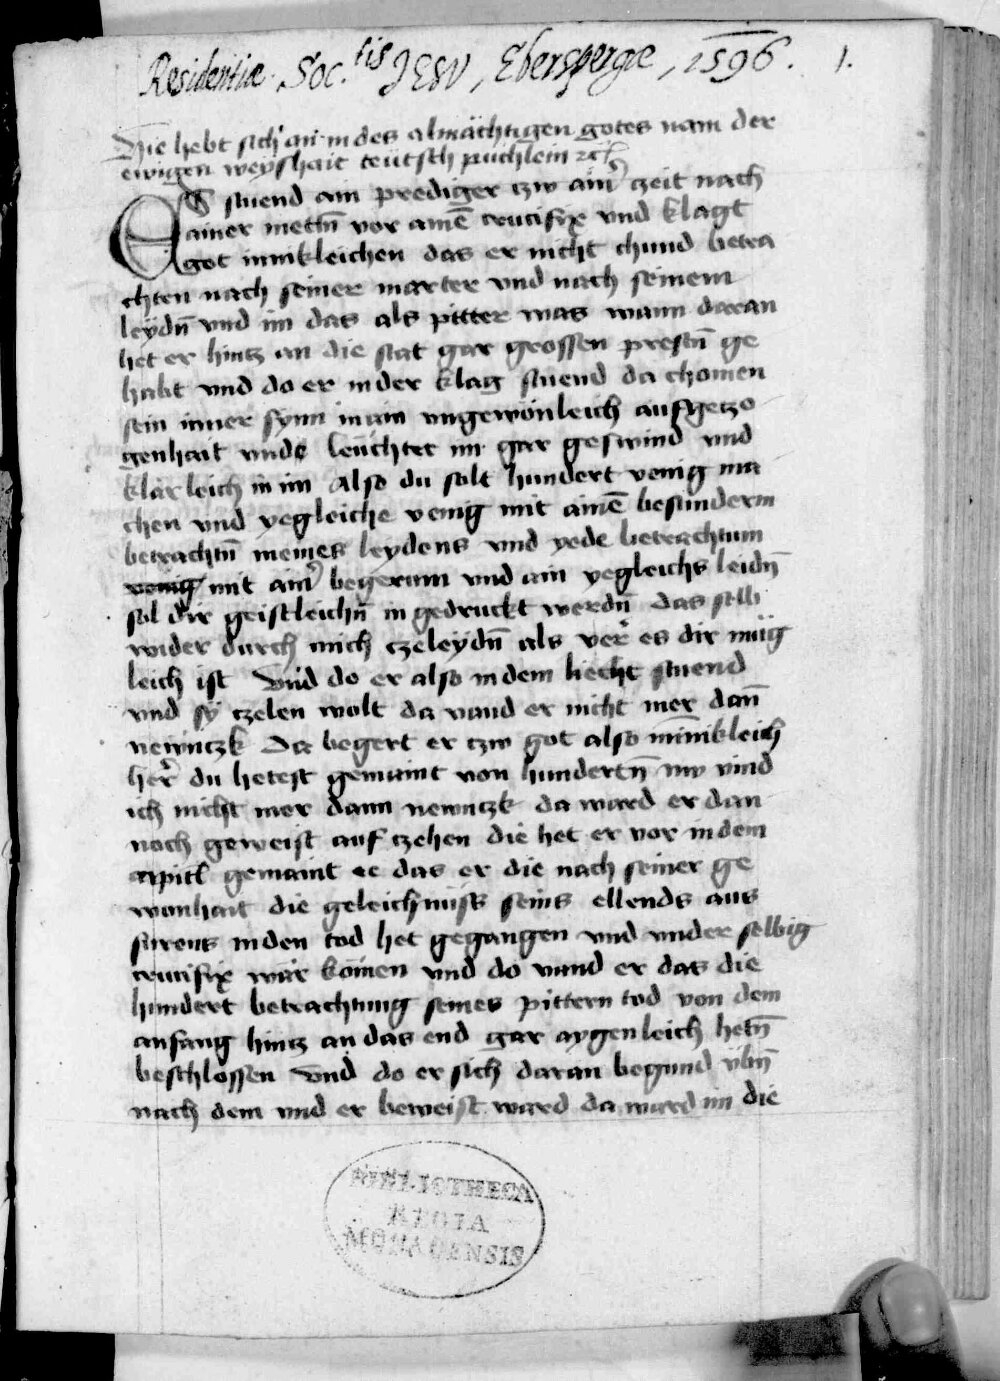 Residentiæ Soc.tis JESU, Eberspergæ, 1596. 1.
Hie hebt sich an in des almächtigen gotes nam der
ewigen weyshait teütsch püchlein
ES stuend ain prediger czw ainer czeit nach
ainer mettñ vor amē crucifix vnd klagt
got innikleichen das er nicht chund betra
chten nach seiner marter vnd nach seinem
leÿdñ vnd im das als pitter was wann daran
het er hintz an die stat gar grossen prestñ ge
habt vnd do er in der klag stuend da chomen
sein inner synn in ain vngewönleich aufgetzo
genhait vnde leüchtet im gar geswind vnd
klärleich in im Also du solt hundert venig ma
chen vnd yegleiche venig mit ainē besunderm
betrachtñ meines leydens vnd yede betrachtum
venig mit ainer begerum vnd ain yegleichs leidñ
sol dir geistleichñ in gedruckt werdñ das selb
wider durch mich czeleÿdñ als ver es dir müg
leich ist Vnd do er also in dem liecht stuend
vnd sÿ czelen wolt da vand er nicht mer dañ
newnczk Da begert er czw got also minnikleich
her du hetest gemaint von hundertñ nw vind
ich nicht mer dann newnczk da ward er dan
noch geweist auf czehen die het er vor in dem
capitl gemaint ee das er die nach seiner ge
wonhait die geleichnüss seins ellends aus
fürens in den tod het gegangen vnd vnder selbig
crucifix wär kömen vnd do vand er das die
hundert betrachtung seines pittern tod von dem
anfang hintz an das end gar aygenleich hetñ
beschlossen Vnd do er sich daran begund vbñ
nach dem vnd er beweist ward da ward im die
BIBLIOTHECA
REGIA
MONACENSIS